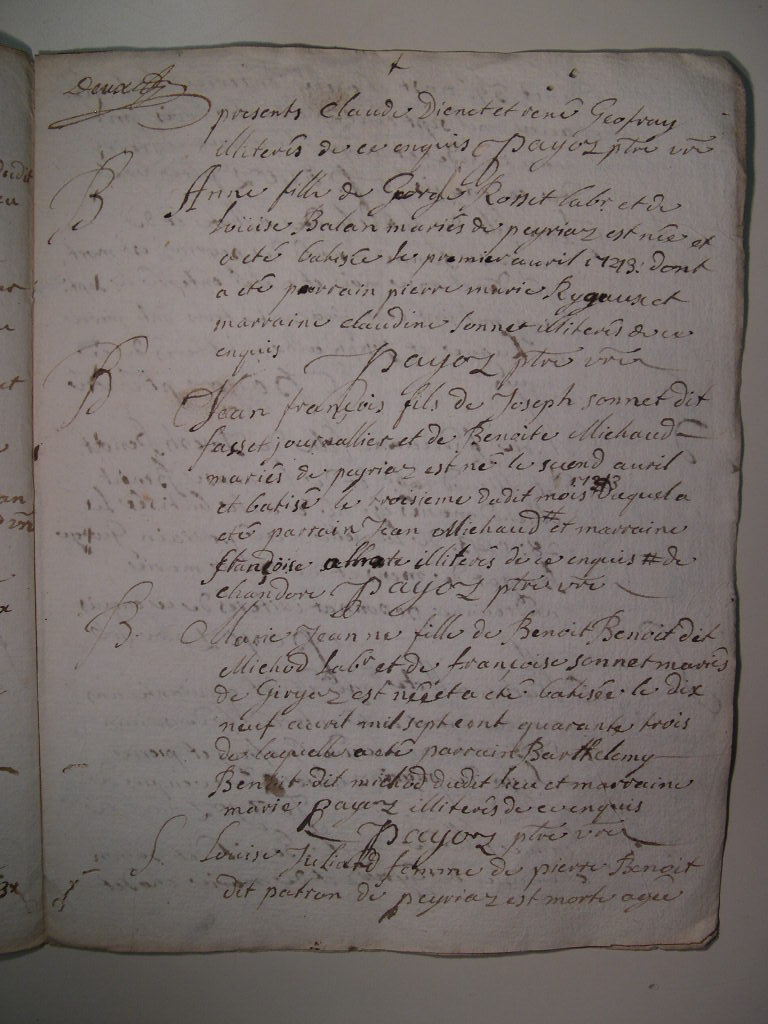 Deux
presents Claude Dienet et rené Geofray
illiterés de ce enquis Payoz ptre vre
B Anne fille de George Rosset labr. et de
Louise Balan mariés de peyriaz est née et
a eté batisée le premier avril 1743. dont
a eté parrain pierre marie et
marraine claudine sonnet illiterés de ce
enquis Payoz ptre vre
B Jean françois fils de Joseph sonnet dit
fasset journallier et de Benoite Michaud
mariés de peyriaz est né le second avril
et batisé le troisieme dudit mois 1743 duquel a
eté parrain Jean Michaud # et marraine
françoise illiterés de ce enquis # de
chandore Payoz ptre vre
B. Marie Jeanne fille de Benoit Benoit dit
Michod labr et de françoise sonnet mariés
de Giryaz est néé et a eté batisée le dix
neuf avril mil sept cent quarante trois
de laquelle a eté parrain Barthelemy
Benoit dit michod dudit lieu et marraine
marie Payoz illiterés de ce enquis
Payoz ptre vre
S. Louise Juliand femme de pierre Benoit
dit patron de peyriaz est morte agée